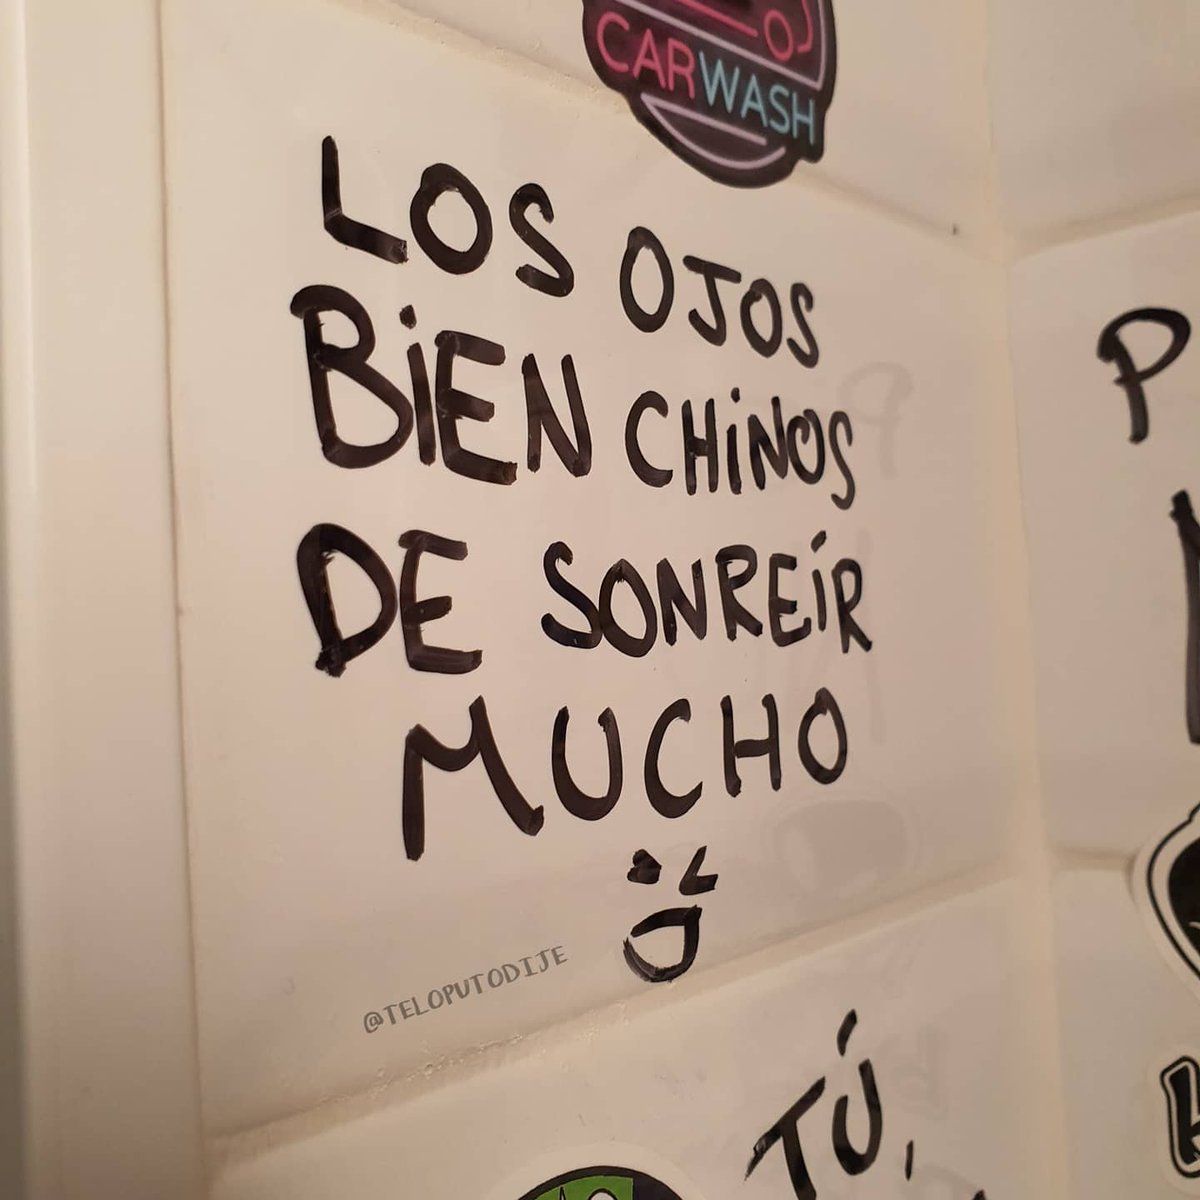 CARWASH
LOS OJOS
BiEN CHiNOS
DE SONREÍR
MUCHO
@TELOPUTODIJE
P
TÚ,